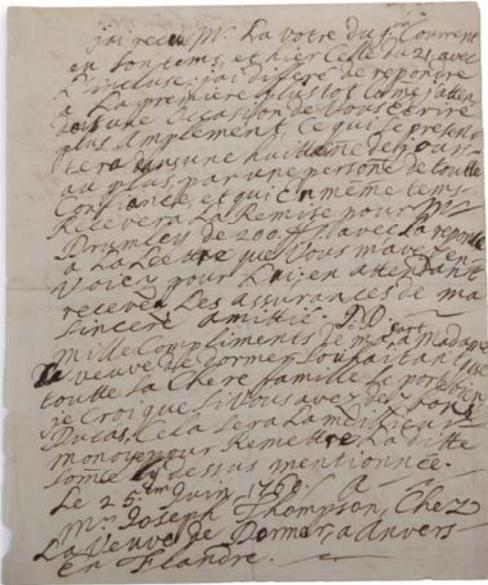 j'ai receu Mr. La votre du Courrent
en son tems, et hier Celle du 21 avec
L'incluse: j'ai diferé de repontre
a La premiere plustot Come j'atten
dois une Occasion de Vous écrire
plus Amplement, Ce qui se presen
tera dans une huittaine de jours
au plus, par une persone de toutte
Confiance, et qui en même tems
Recevera La Remise pour Mr
Brumley de 200. avec La reponse
a La Lettre que Vous m'avez en
Voiez pour Lui; en attendant
recevez Les assurances de ma
sincere amittié. D.D.
mille Compliments de ma part a Madame
La veuve de Dormer, souhaitant que
toutte La Chere famille se porte bien
je Croi que si Vous avez des bons
Ducas, Cela sera La meilieur
monoye pour Remettre La ditte
somme dessus mentionnée.
Le 25em Juin 1760. A
Mr. Joseph Thompson, Chez
La Veuve de Dormer, a Anvers
en Flandre.